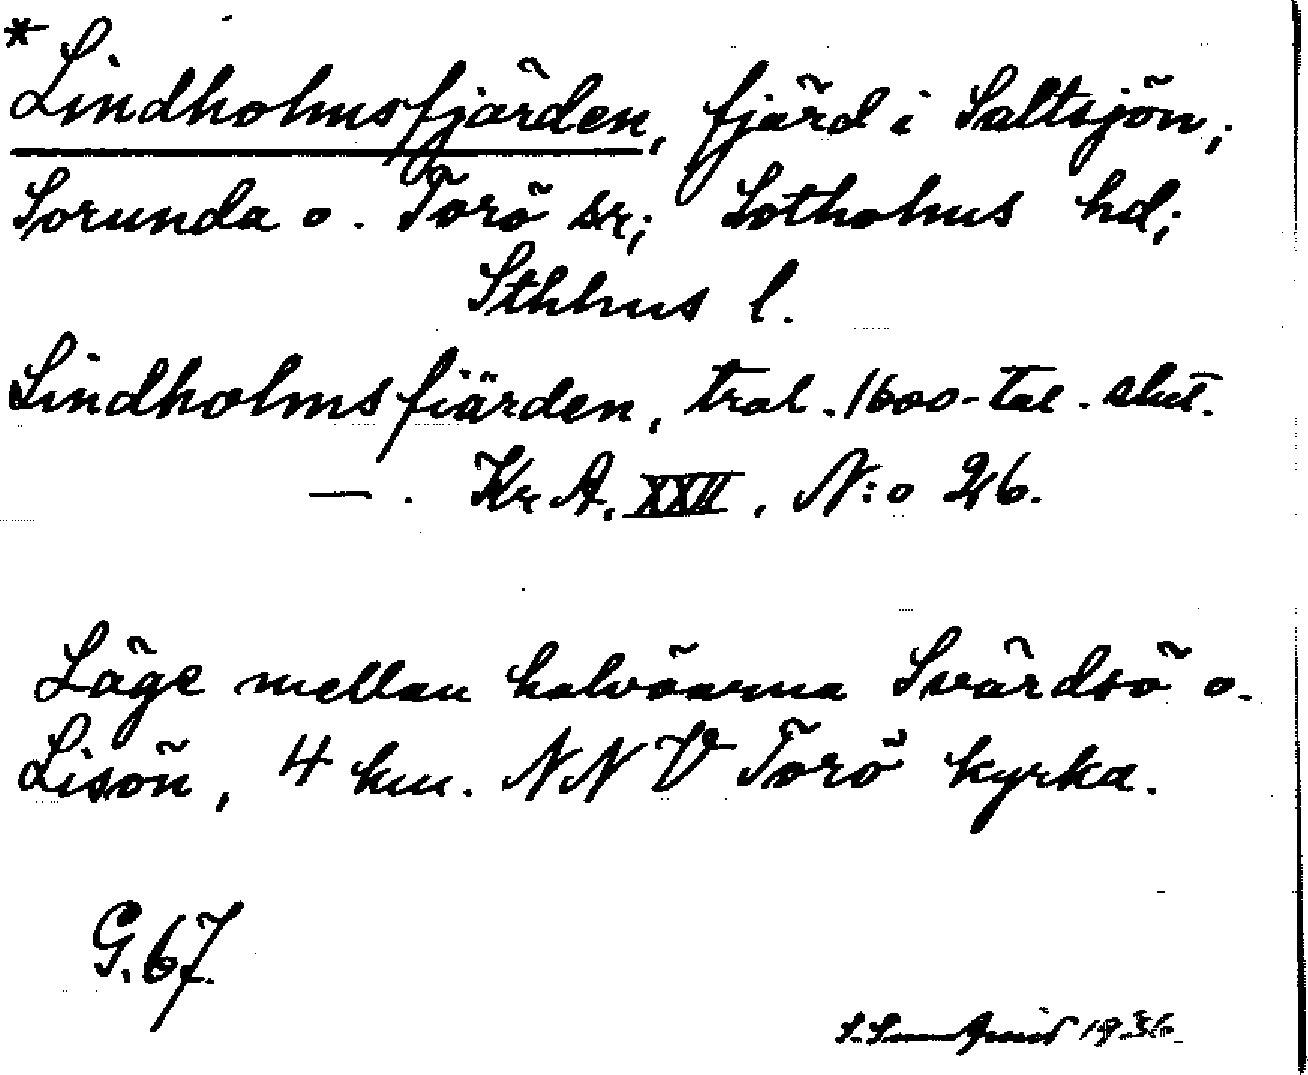 * Lindholmsfjärden, fjärd i Saltsjön;
Sorunda o. Torö sr; Sotholms hd;
Sthlms l.
Lindholms fiärden, trol. 1600-tal. slut.
— . Kr. A. XXII, N:o 26.
Läge mellan halvöarna Svärdsö o.
Lisön, 4 km. NNV Torö kyrka.
G. 67.
1936